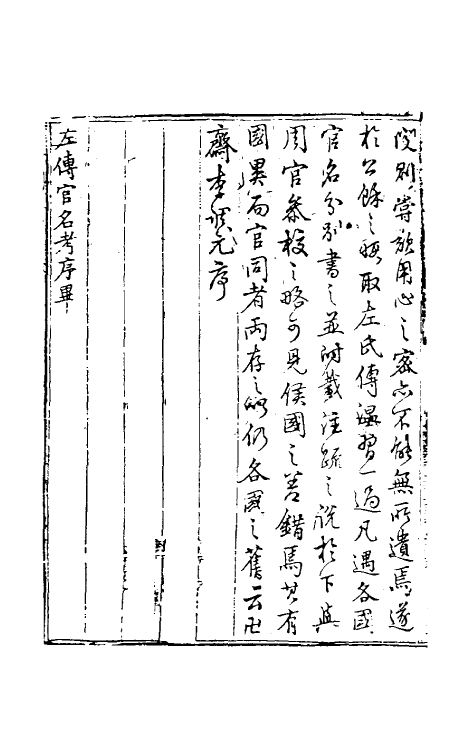 閱則嘗敘用心之密亦不能無所遺焉遂
於公餘之暇取左氏傳溫習一過凡遇各國
官名分別書之並附載注疏之說於下與
周官參校之略可見侯國之差錯焉其有
國異而官同者兩存之仍各國之舊云
齋李調元序
左傳官名考序畢